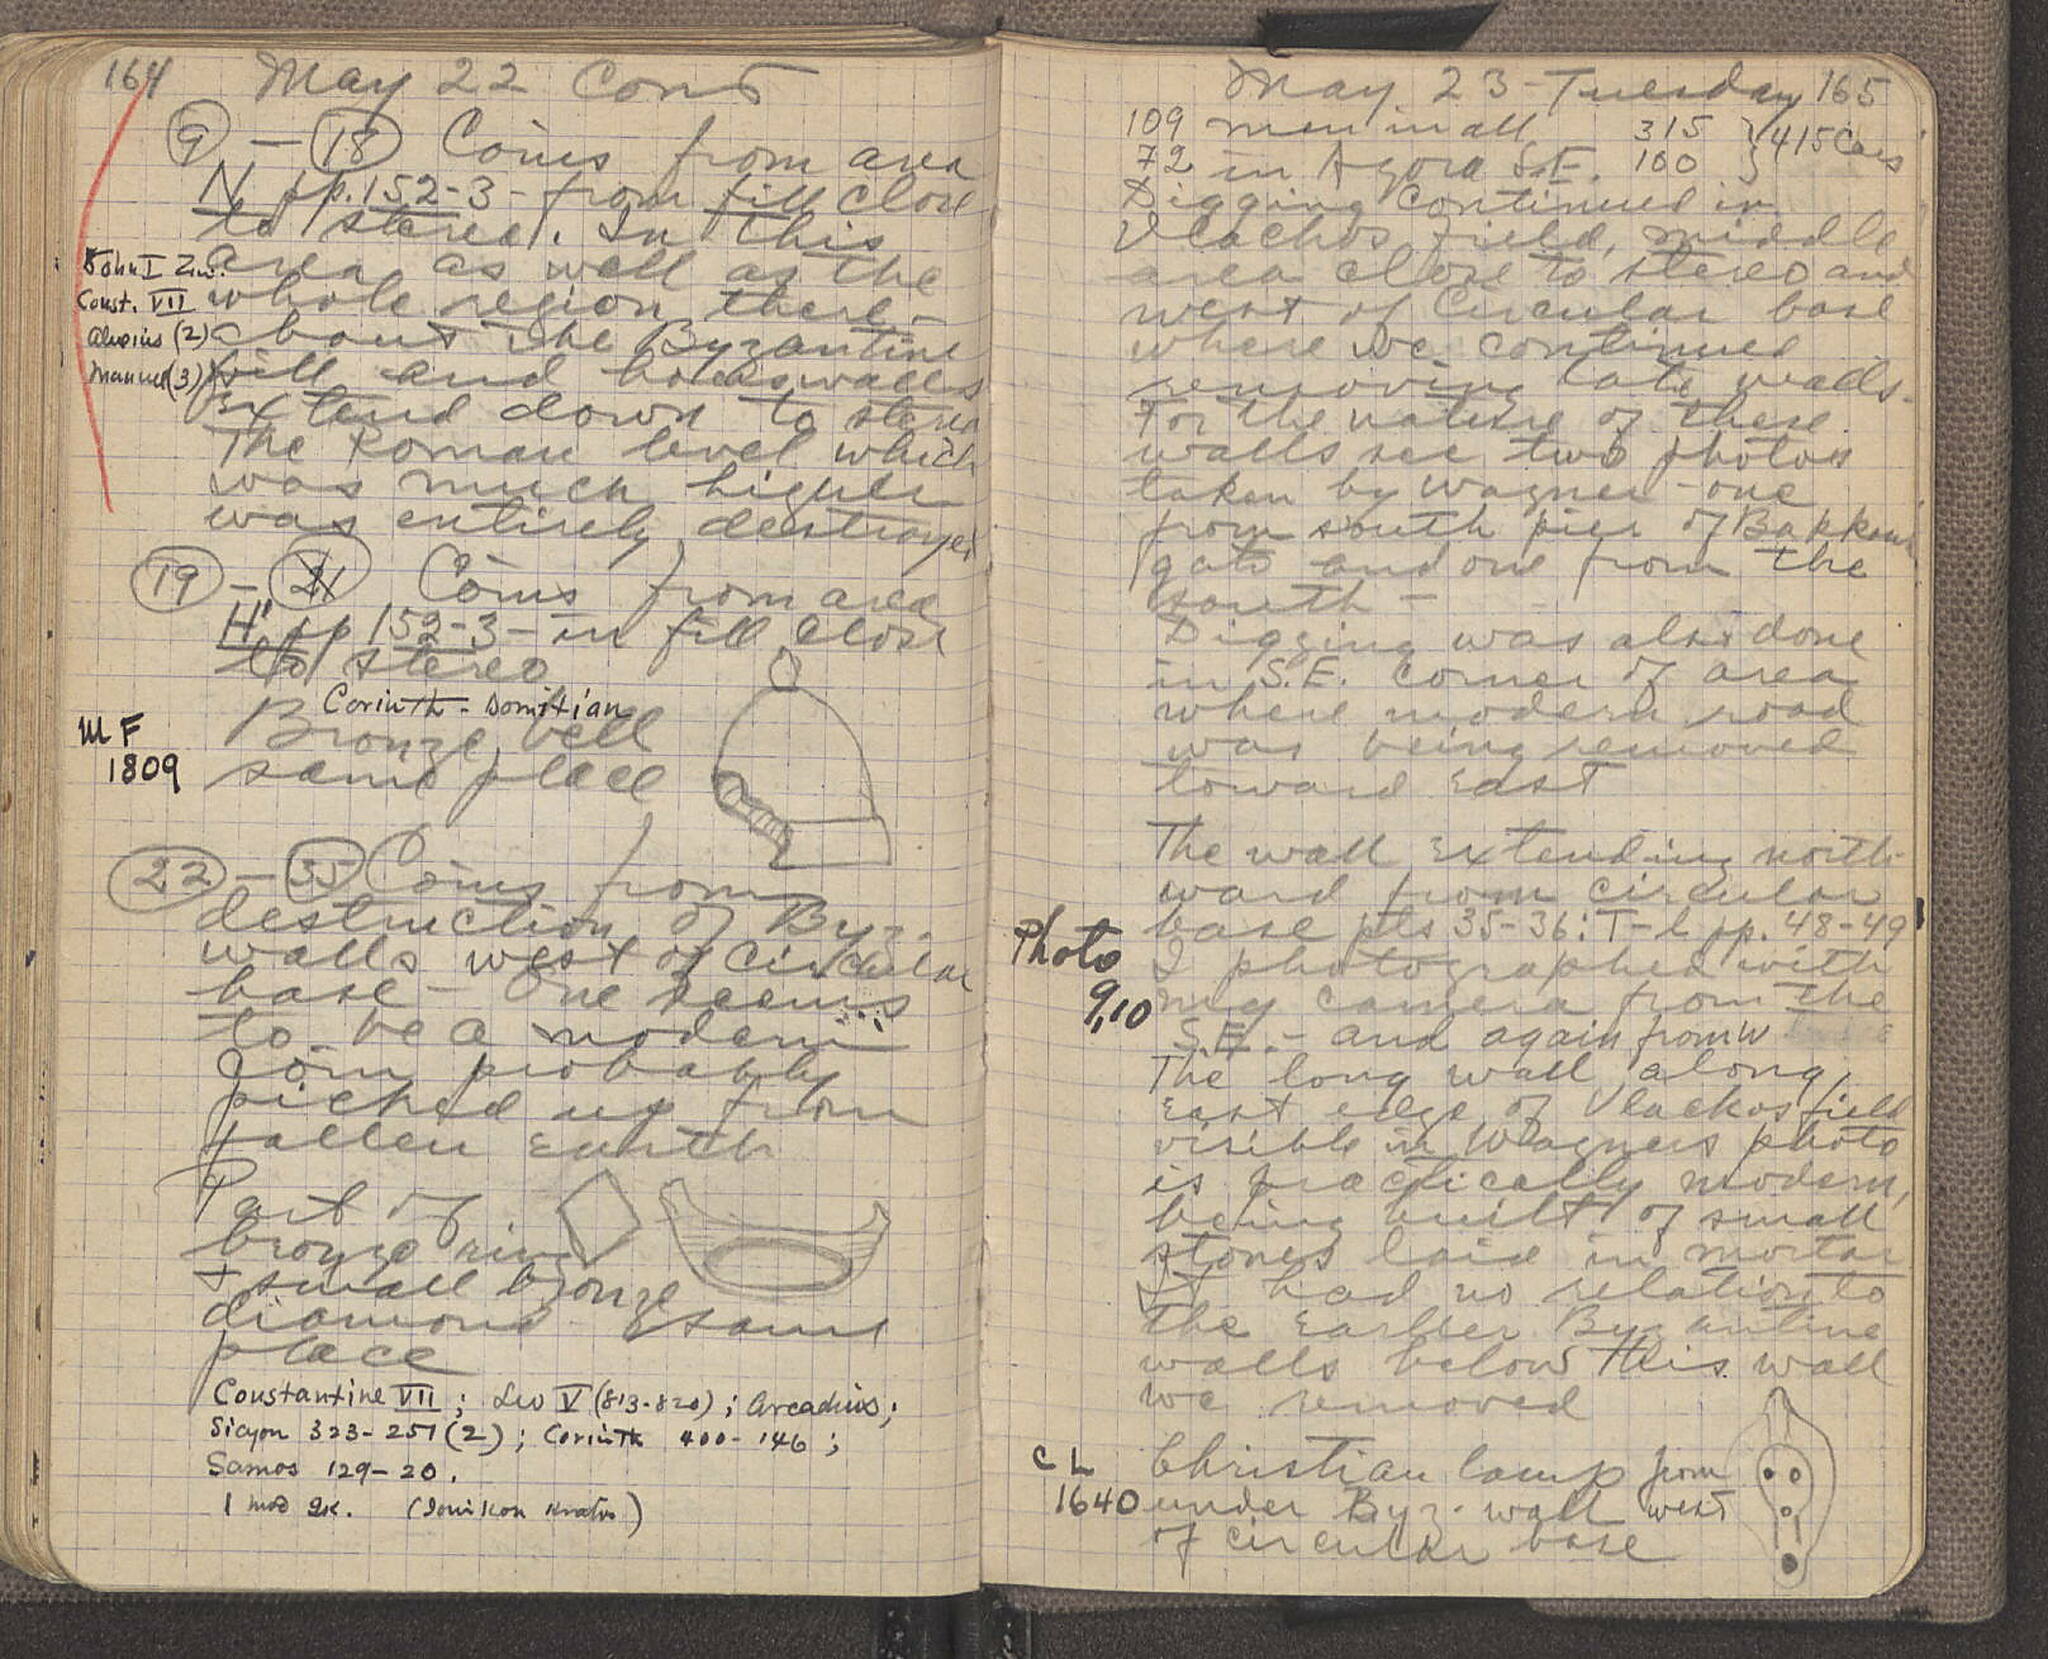 164 May 22 Cont
9 - 18 Coins from area
N pp. 152-3 - from fill close
to stereo. In this
area as well as the
whole region there-
abouts the Byzantine
fill and walls
extend down to stereo
The Roman level which
was much higher
was entirely destroyed
John I Zim.
Const. VII
Alexius (2)
Manuel (3)
19 - 21 Coins from area
H' pp 152-3 - in fill close
to stereo
Corinth - Domitian
MF
1809
Bronze bell
same place
22 - 35 Coins from
destruction of Byz.
walls west of circular
base - One seems
to be a modern
coin probably
picked up from
fallen earth
Part of
bronze ring
+ small bronze
diamond same
place
Constantine VII ; Leo V (813-820) ; Arcadius ;
Sicyon 323-251 (2) ; Corinth 400-146 ;
Samos 129-20.
1 mod Gk. (Ionikon Kratos)
May 23 - Tuesday 165
109 men in all 315 } 415 Cars
72 in Agora S.E. 100 }
Digging continued in
Vlachos field, middle
area close to stereo and
west of Circular base
where we continued
removing late walls.
For the nature of these
walls see two photos
taken by Wagner - one
from south pier of
gate and one from the
south -
Digging was also done
in S.E. corner of area
where modern road
was being removed
toward East
The wall extending north-
ward from circular
base pts 35-36: T-l pp. 48-49
Photo
9,10
I photographed with
my camera from the
S.E. - and again from W
The long wall along
east edge of Vlachos field
visible in Wagners photo
is practically modern,
being built of small
stones laid in mortar
It had no relation to
the earlier Byzantine
walls below this wall
we removed
CL
1640
Christian lamp from
under Byz. wall west
of circular base